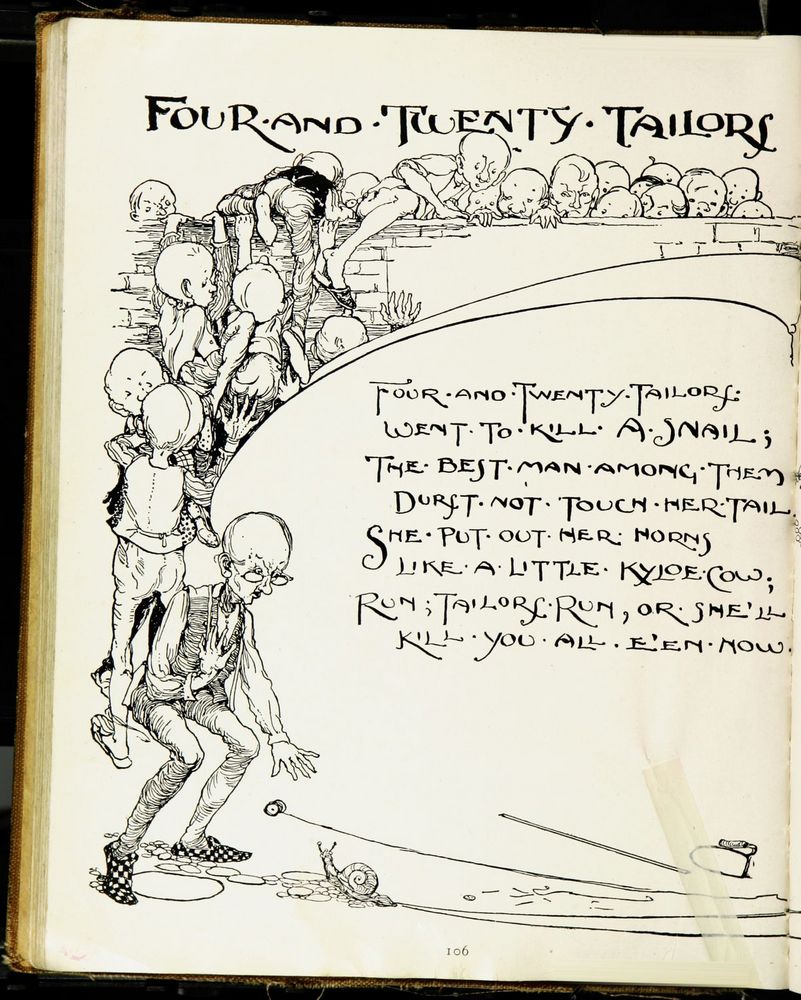 FOUR·AND·TWENTY·TAILORS
FOUR·AND·TWENTY·TAILORS·
WENT·TO·KILL·A·SNAIL;
THE·BEST·MAN·AMONG·THEM
DURST·NOT·TOUCH·HER·TAIL.
SHE·PUT·OUT·HER·HORNS
LIKE·A·LITTLE·KYLOE·COW;
RUN;TAILORS·RUN, OR·SHE'LL
KILL·YOU·ALL·E'EN·NOW.
106